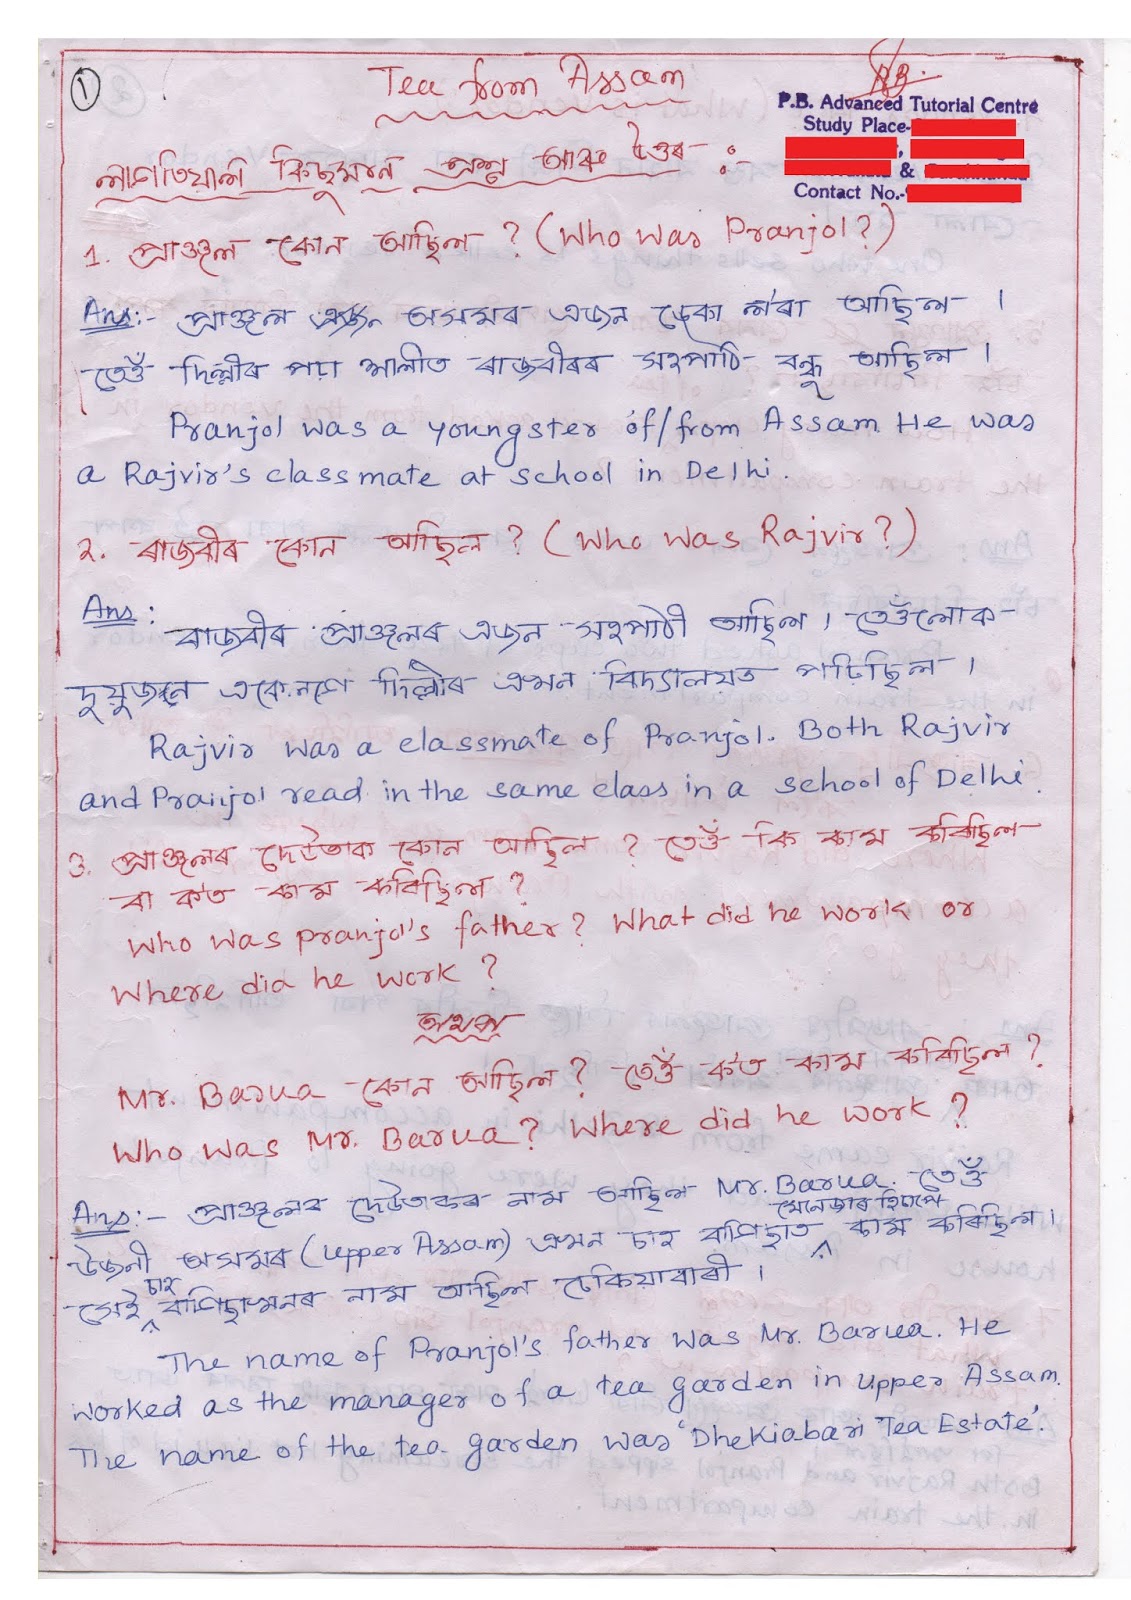 ১
Tea from Assam
P.B. Advanced Tutorial Centre
Study Place-
&
Contact No.-
লাগতিয়াল কিছুমান প্ৰশ্ন আৰু উত্তৰ :-
1. প্ৰাঞ্জল কোন আছিল ? (Who was Pranjol?)
Ans:- প্ৰাঞ্জল এজন অসমৰ এজন ডেকা ল'ৰা আছিল ।
তেওঁ দিল্লীৰ পঢ়া শালীত ৰাজবীৰৰ সহপাঠি বন্ধু আছিল ।
Pranjol was a youngster of/from Assam He was
a Rajvir's classmate at school in Delhi.
2. ৰাজবীৰ কোন আছিল ? (Who was Rajvir?)
Ans:
ৰাজবীৰ প্ৰাঞ্জলৰ এজন সহপাঠী আছিল । তেওঁলোক
দুয়ুজনে একেলগে দিল্লীৰ এখন বিদ্যালয়ত পঢ়িছিল ।
Rajvir was a classmate of Pranjol. Both Rajvir
and Pranjol read in the same class in a school of Delhi.
3. প্ৰাঞ্জলৰ দেউতাক কোন আছিল ? তেওঁ কি কাম কৰিছিল
বা ক'ত কাম কৰিছিল ?
Who was pranjol's father? What did he work or
Where did he work ?
অথবা
Mr. Barua কোন আছিল ? তেওঁ ক'ত কাম কৰিছিল ?
Who was Mr. Barua? Where did he work ?
Ans:- প্ৰাঞ্জলৰ দেউতাকৰ নাম আছিল Mr. Barua. তেওঁ
উজনী অসমৰ (Upper Assam) এখন চাহ বাগিছাত মেনেজাৰ হিচাপে কাম কৰিছিল ।
সেই চাহ বাগিছাখনৰ নাম আছিল ঢেকিয়াবাৰী ।
The name of Pranjol's father was Mr. Barua. He
worked as the manager of a tea garden in upper Assam.
The name of the tea garden was 'Dhekiabari Tea Estate'.